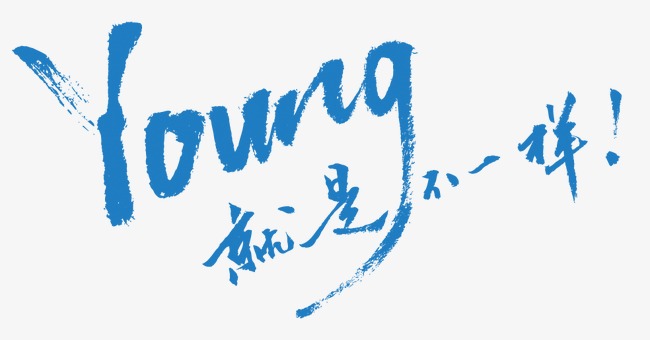 Young
就是不一样！